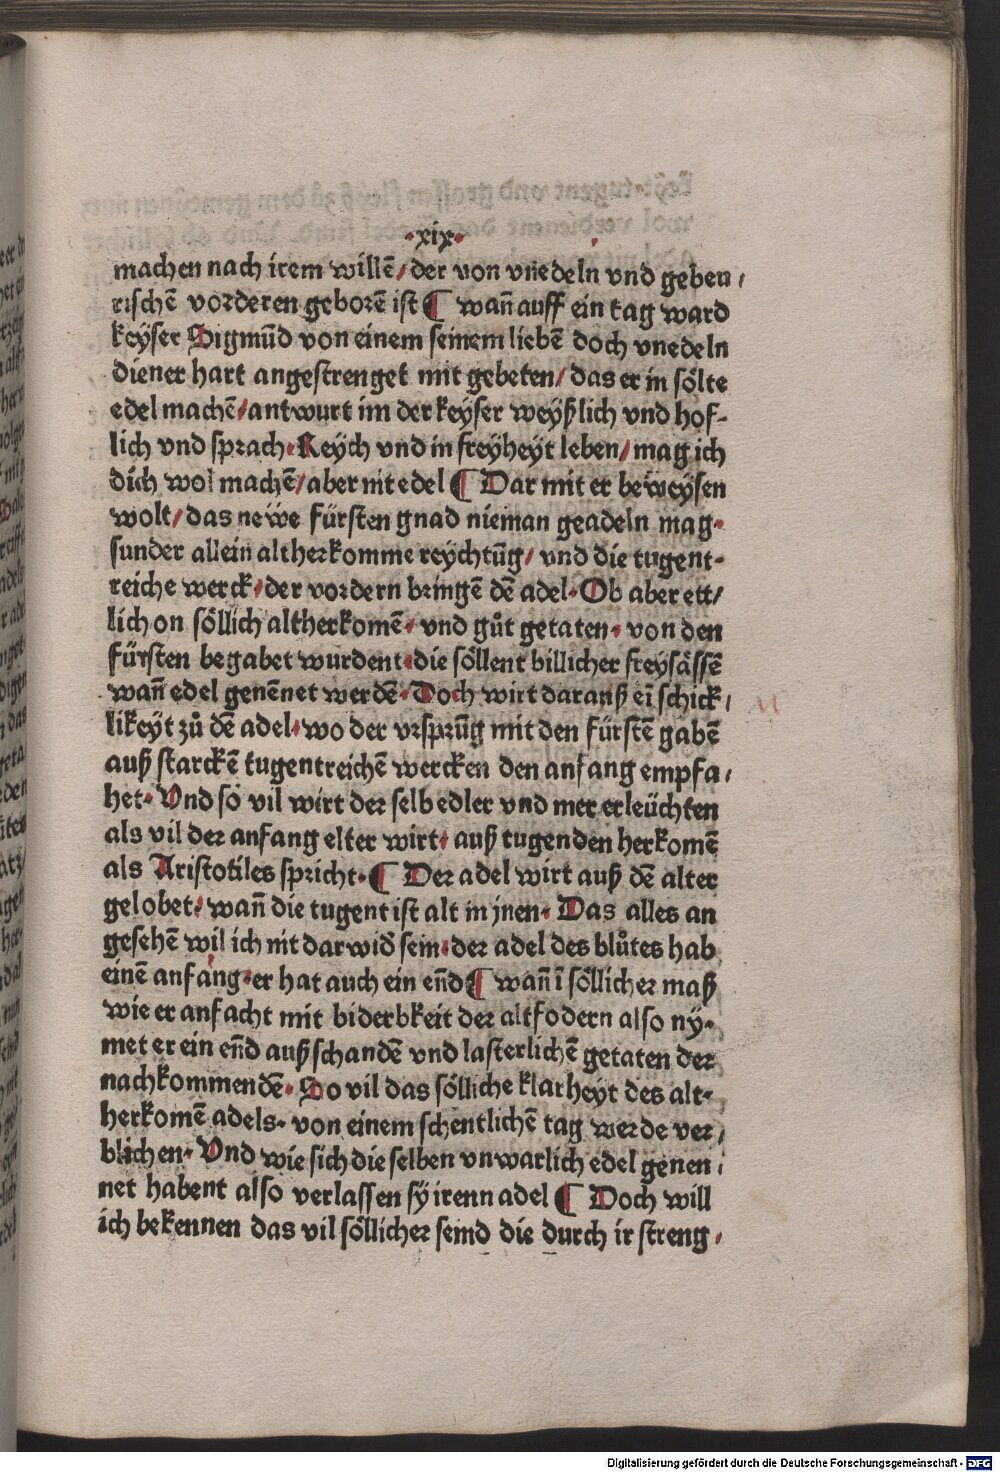 ·xix·
machen nach irem willē/ der von vnedeln vnd gebeu/
rischē vorderen geborē ist ¶ wañ auff ein tag ward
keyser Sigmūd von einem seinem liebē doch vnedeln
diener hart angestrenget mit gebeten/ das er in sölte
edel machē/ antwurt im der keyser weyßlich vnd hof-
lich vnd sprach· Reych vnd in freyheyt leben/ mag ich
dich wol machē/ aber nit edel ¶ Dar mit er beweysen
wolt/ das newe fürsten gnad nieman geadeln mag·
sunder allein altherkomme reychtūg/ vnd die tugent-
reiche werck/ der vordern bringē dē adel· Ob aber ett/
lich on söllich altherkomē/ vnd gůt getaten· von den
fürsten begabet wurdent· die söllent billicher freysässē
wañ edel genēnet werdē· Doch wirt darauß eī schick/
likeyt zů dē adel· wo der vrsprūg mit den fürstē gabē
auß starckē tugentreichē wercken den anfang empfa/
het· Vnd so vil wirt der selb edler vnd mer erleüchten
als vil der anfang elter wirt/ auß tugenden herkomē
als Aristotiles spricht· ¶ Der adel wirt auß dē alter
gelobet/ wañ die tugent ist alt in jnen· Das alles an
gesehē wil ich nit darwid̄ sein· der adel des blůtes hab
einē anfang· er hat auch ein eñd ¶ wañ ī söllicher maß
wie er anfacht mit biderbkeit der altfodern also ny-
met er ein eñd auß schandē vnd lasterlichē getaten der
nachkommendē· So vil das sölliche klarheyt des alt-
herkomē adels· von einem schentlichē tag werde ver/
blichen· Vnd wie sich die selben vnwarlich edel genen/
net habent also verlassen sy irenn adel ¶ Doch will
ich bekennen das vil söllicher seind die durch ir streng/
Digitalisierung gefördert durch die Deutsche Forschungsgemeinschaft - DFG